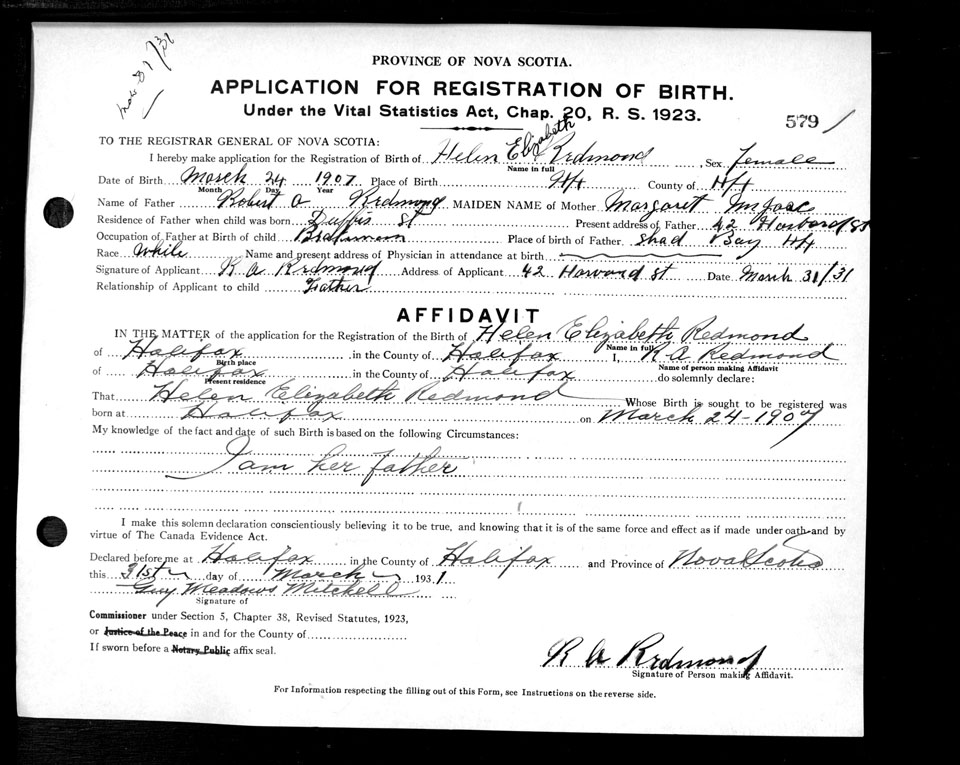 PROVINCE OF NOVA SCOTIA.
APPLICATION FOR REGISTRATION OF BIRTH.
Under the Vital Statistics Act, Chap. 20, R. S. 1923.
579
TO THE REGISTRAR GENERAL OF NOVA SCOTIA:
I hereby make application for the Registration of Birth of Helen Elizabeth Redmond, Sex Female
Name in full
Date of Birth March 24 1907 Place of Birth Hfx County of Hfx
Month Day Year
Name of Father Robert A Redmond MAIDEN NAME of Mother Margaret
Residence of Father when child was born Duffus St Present address of Father 42 Harvard St
Occupation of Father at Birth of child Place of birth of Father Shad Bay Hfx
Race White Name and present address of Physician in attendance at birth
Signature of Applicant R A Redmond Address of Applicant 42 Harvard St Date March 31/31
Relationship of Applicant to child Father
AFFIDAVIT
IN THE MATTER of the application for the Registration of the Birth of Helen Elizabeth Redmond
Name in full
of Halifax in the County of Halifax I, R A Redmond
Birth place Name of person making Affidavit
of Halifax in the County of Halifax do solemnly declare:
Present residence
That Helen Elizabeth Redmond Whose Birth is sought to be registered was
born at Halifax on March 24-1907
My knowledge of the fact and date of such Birth is based on the following Circumstances:
I am her father
I make this solemn declaration conscientiously believing it to be true, and knowing that it is of the same force and effect as if made under oath and by
virtue of The Canada Evidence Act.
Declared before me at Halifax in the County of Halifax and Province of Nova Scotia
this 31st day of March 1931
Guy Meadows Mitchell
Signature of
Commissioner under Section 5, Chapter 38, Revised Statutes, 1923,
or Justice of the Peace in and for the County of
If sworn before a Notary Public affix seal.
R A Redmond
Signature of Person making Affidavit.
For Information respecting the filling out of this Form, see Instructions on the reverse side.